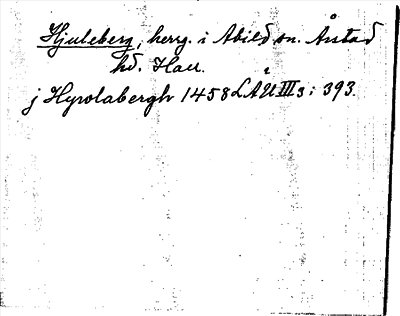 Hjuleberg, herrg. i Abild sn. Årstad
hd. Hall.
j Hyrolabergh 1458 LÄU III 3: 393.